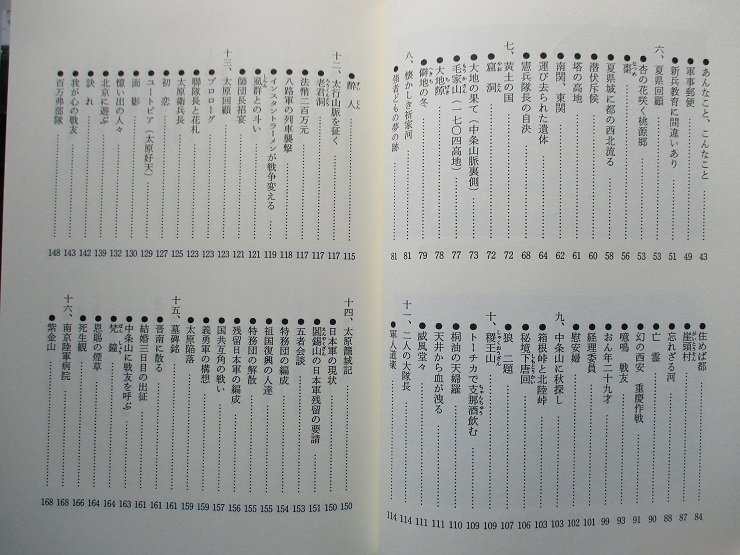 ●あんなこと、こんなこと……43
●軍事郵便……49
●新兵教育に間違いあり……51
六、夏県回顧……53
●杏の花咲く桃源郷……53
●棗……56
●夏県城に都の西北流る……58
●潜伏斥候……59
●南関、東関……60
●塔の高地……61
●運び去られた遺体……64
●憲兵隊長の自決……68
七、黄土の国……72
●窟洞……72
●大地の果て(中条山脈裏側)……73
●毛家山(一七〇四高地)……77
●大地蹄……78
●僻地の冬……79
八、懐かしき祈家河……81
●強者どもの夢の跡……81
●住めば都……84
●崖頭村……87
●忘れざる河……88
●亡霊……90
●幻の西安 重慶作戦……91
●噫鳴 戦友……93
●おん年二十九才……99
●経理委員……101
●慰安婦……102
九、中条山に秋探し……103
●箱根峠と北陸峠……103
●秘境下唐回……106
●狼 二題……107
十、稷王山……109
●トーチカで支那酒飲む……109
●桐油の天婦羅……110
●天井から血が洩る……111
●威風堂々……111
十一、二人の大隊長……114
●軍人道楽……114
●酔人……115
十二、太行山脈を征く……117
●老君洞……117
●法幣二百万元……117
●八路軍の列車襲撃……118
●インスタントラーメンが戦争変える……119
●風群との斗い……121
●師団長招宴……121
十三、太原回顧……123
●プロローグ……123
●聯隊長と花札……123
●太原衛兵長……125
●初恋……127
●ユートピア(太原好天)……129
●面影……130
●憶い出の人々……132
●北京に遊ぶ……139
●訣れ……142
●我が心の戦友……143
●百万弗部隊……148
十四、太原籠城記……150
●日本軍の現状……150
●閻錫山の日本軍残留の要請……151
●五者会談……153
●特務団の編成……154
●祖国復興の人達……154
●特務団の解散……155
●残留日本軍の編成……156
●国共互角の戦い……156
●義勇軍の構想……157
●太原陥落……159
十五、墓碑銘……159
●晋南に散る……161
●結婚三日目の出征……161
●中条山に戦友を呼ぶ……161
●梵鐘……163
●恩賜の煙草……164
●死生観……166
十六、南京陸軍病院……168
●紫金山……168